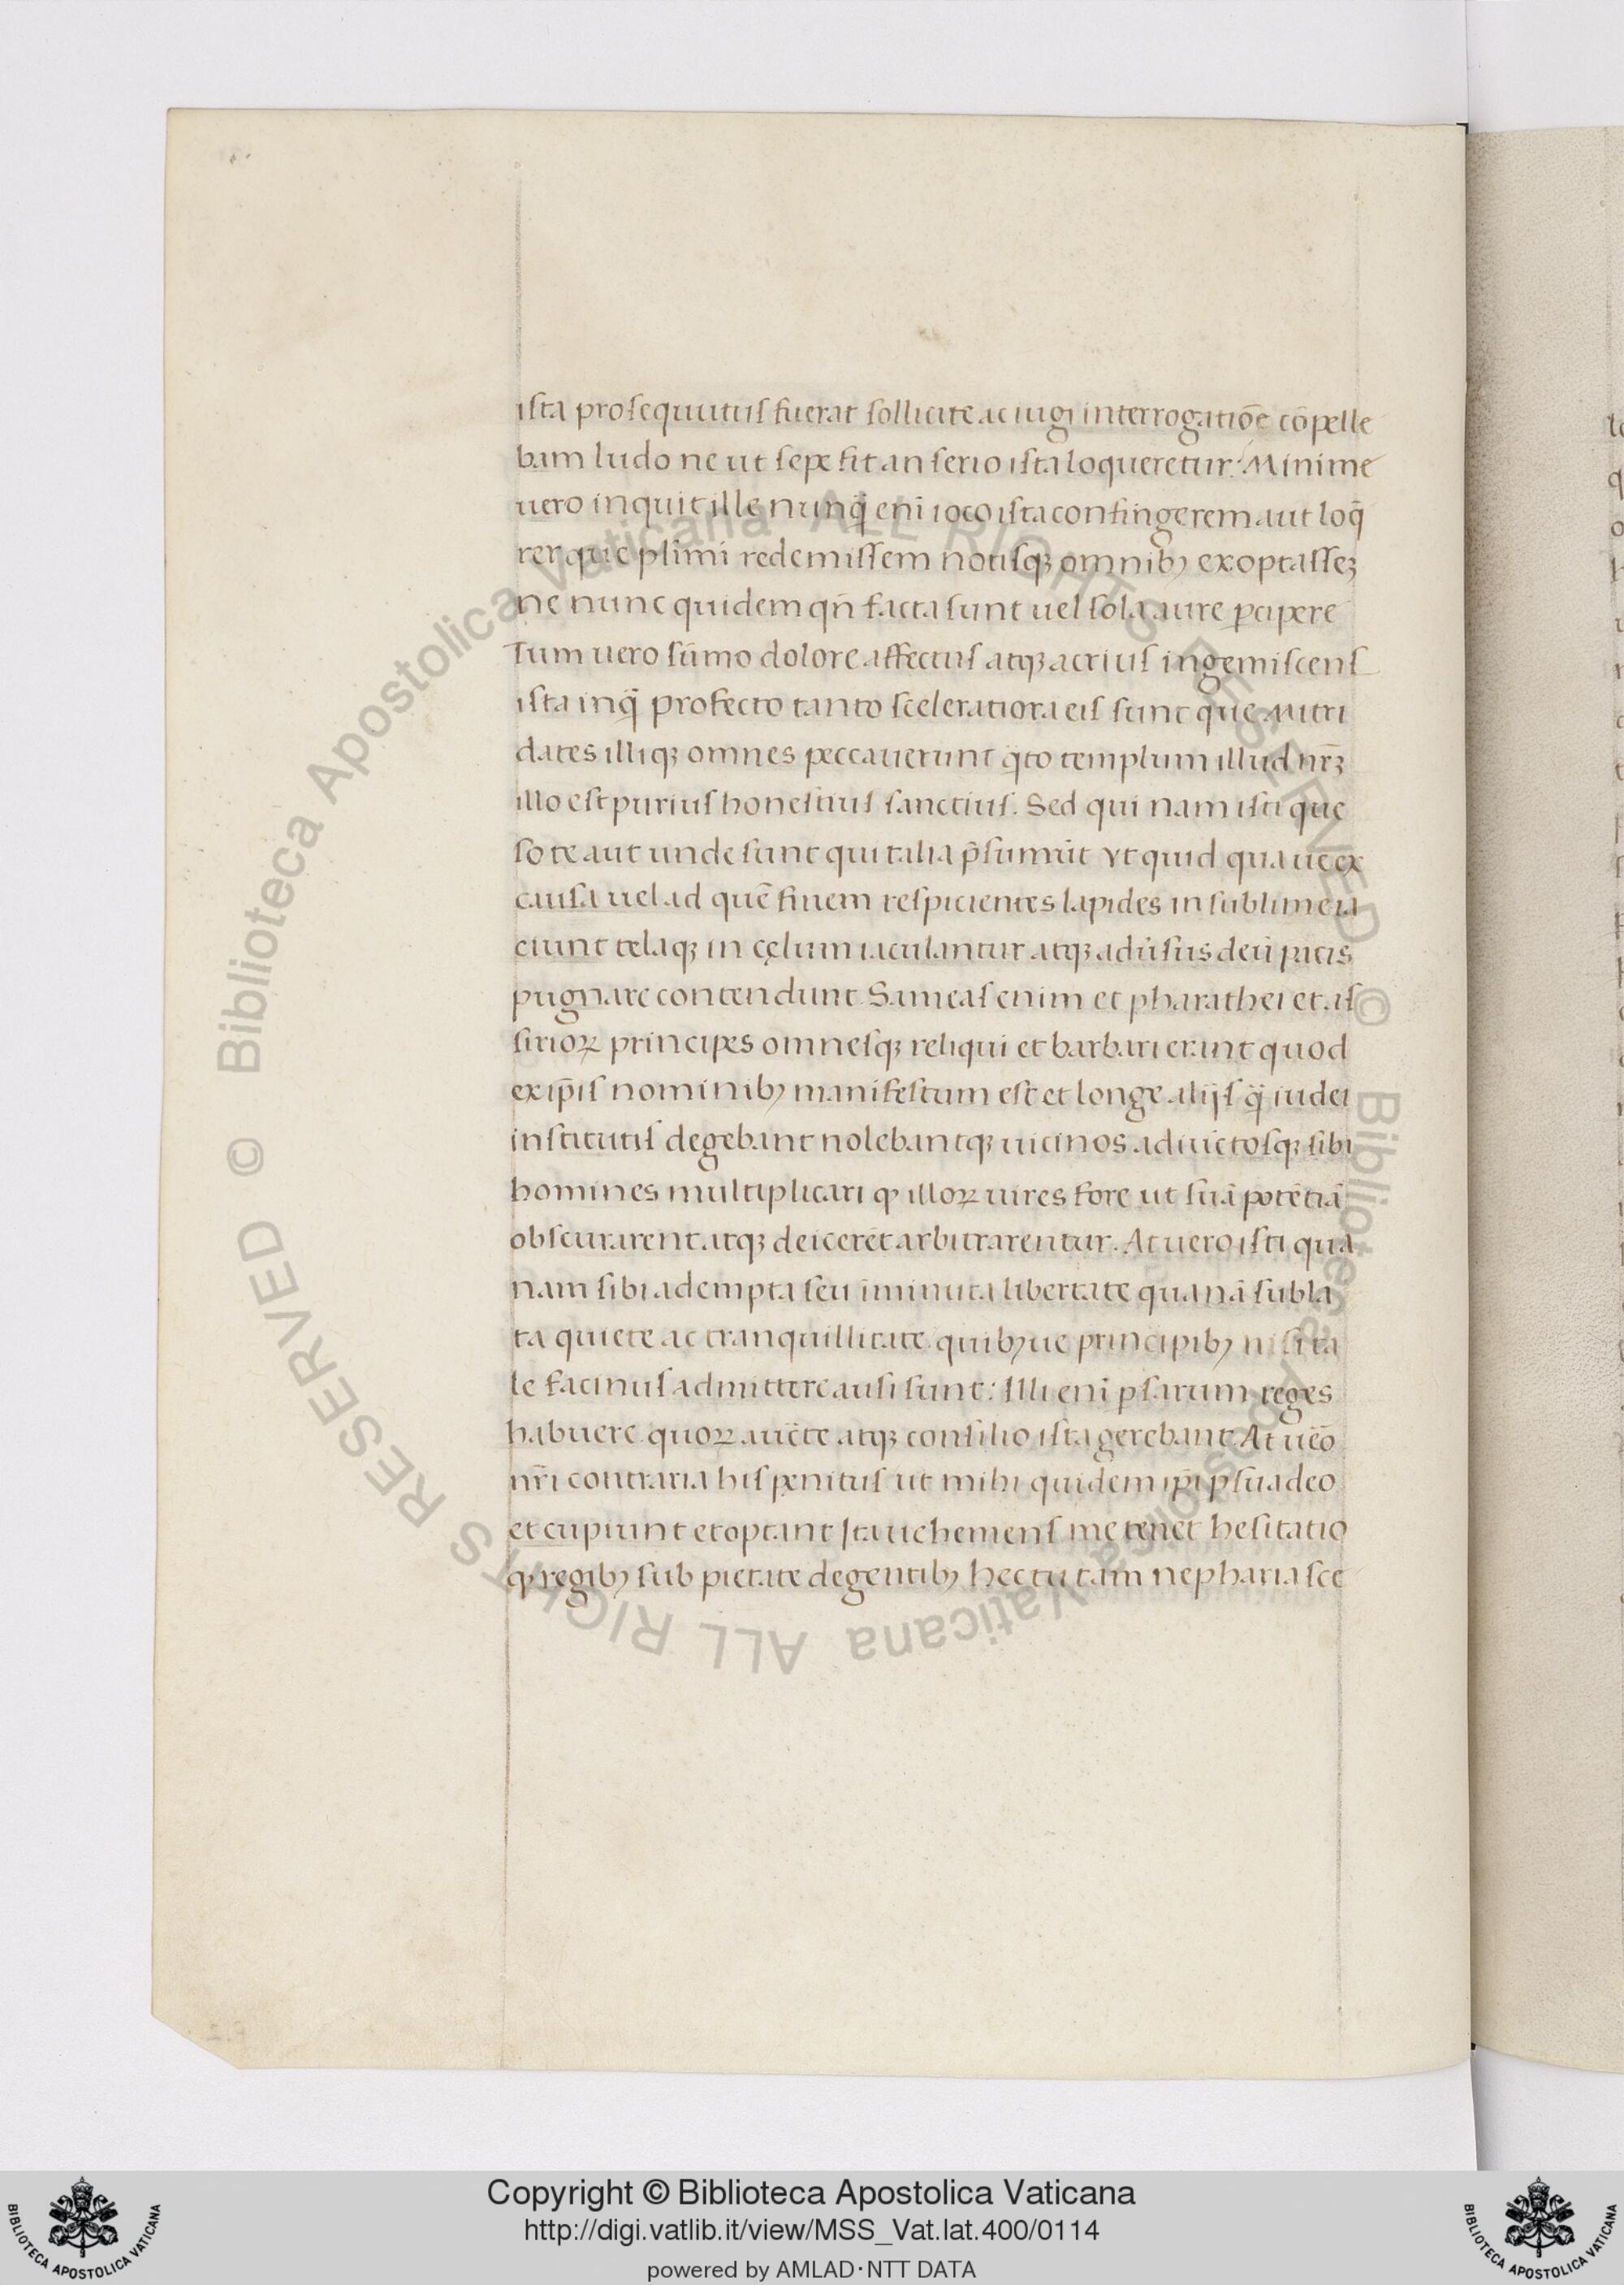 ista prosequutus fuerat sollicite ac iugi interrogatiōe cōpelle
bam ludo ne ut sepe fit an serio ista loqueretur: Minime
uero inquit ille nunq̄ enī ioco ista confingerem aut loq̄
rer que plīmi redemissem notisqꝫ omnibꝰ exoptasseꝫ
ne nunc quidem qn̄ facta sunt uel sola aure ꝑcipere
Tum uero sūmo dolore affectus atqꝫ acrius ingemiscens
ista inq̄ profecto tanto sceleratiora eis sunt que mitri
dates illiqꝫ omnes peccauerunt q̄to templum illud nr̄ꝫ
illo est purius honestius sanctius. Sed qui nam isti que
so te aut unde sunt qui talia p̄sumūt Vt quid qua ue ex
causa uel ad quē finem respicientes lapides in sublime ia
ciunt telaqꝫ in cęlum iaculantur atqꝫ adūsus deū patis
pugnare contendunt. Sameas enim et pharathei et as
sirioꝝ principes omnesqꝫ reliqui et barbari erant quod
ex ip̄is nominibꝰ manifestum est et longe alijs q̄ iudei
institutis degebant nolebantqꝫ uicinos adiūctosqꝫ sibi
homines multiplicari ꝙ illoꝝ uires fore ut suā potētiā
obscurarent atqꝫ deicerēt arbitrarentur. At uero isti qua
nam sibi adempta seu īminuta libertate quanā subla
ta quiete ac tranquillitate quibꝰue principibꝰ nisi ta
le facinus admittere ausi sunt: Illi enī ꝑsarum reges
habuere quoꝝ auc̄te atqꝫ consilio ista gerebant. At uēo
nr̄i contraria his penitus ut mihi quidem ip̄i ꝑsuadeo
et cupiunt et optant Ita uehemens me tenet hesitatio
ꝙ regibꝰ sub pietate degentibꝰ hec tu tam nepharia sce
© Biblioteca Apostolica Vaticana ALL RIGHTS RESERVED © Biblioteca Apostolica Vaticana ALL RIGHTS RESERVED
BIBLIOTECA APOSTOLICA VATICANA
Copyright © Biblioteca Apostolica Vaticana
http://digi.vatlib.it/view/MSS_Vat.lat.400/0114
powered by AMLAD·NTT DATA
BIBLIOTECA APOSTOLICA VATICANA